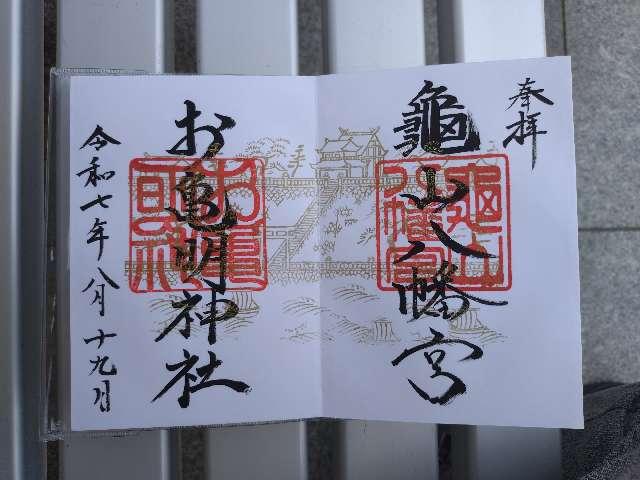 奉拝
龜山八幡宮
お亀明神社
令和七年八月十九日